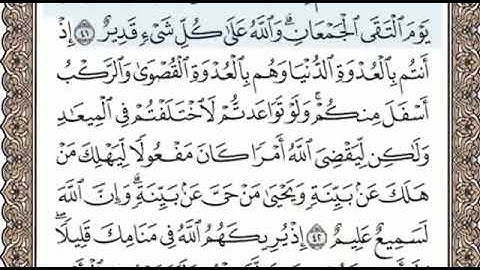 يَوْمَ ٱلْتَقَى ٱلْجَمْعَانِ ۗ وَٱللَّهُ عَلَىٰ كُلِّ شَىْءٍ قَدِيرٌ ٤١ إِذْ
أَنتُم بِٱلْعُدْوَةِ ٱلدُّنْيَا وَهُم بِٱلْعُدْوَةِ ٱلْقُصْوَىٰ وَٱلرَّكْبُ
أَسْفَلَ مِنكُمْ ۚ وَلَوْ تَوَاعَدتُّمْ لَٱخْتَلَفْتُمْ فِى ٱلْمِيعَٰدِ ۙ
وَلَٰكِن لِّيَقْضِىَ ٱللَّهُ أَمْرًا كَانَ مَفْعُولًا لِّيَهْلِكَ مَنْ
هَلَكَ عَنۢ بَيِّنَةٍ وَيَحْيَىٰ مَنْ حَىَّ عَنۢ بَيِّنَةٍ ۗ وَإِنَّ ٱللَّهَ
لَسَمِيعٌ عَلِيمٌ ٤٢ إِذْ يُرِيكَهُمُ ٱللَّهُ فِى مَنَامِكَ قَلِيلًا ۖ